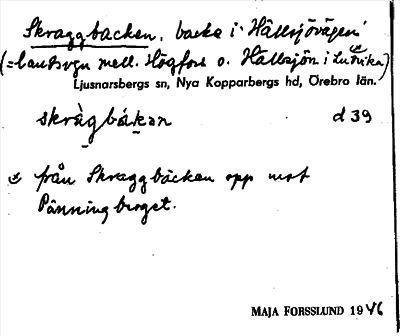 Skraggbacken, backe i Hällsjövägen
(=landsvgn mell. Högfors o. Hällsjön i Ludvika)
Ljusnarsbergs sn, Nya Kopparbergs hd, Örebro län.
skràgbákan d 39
från Skraggbäcken opp mot
Pänningberget.
MAJA FORSSLUND 1946